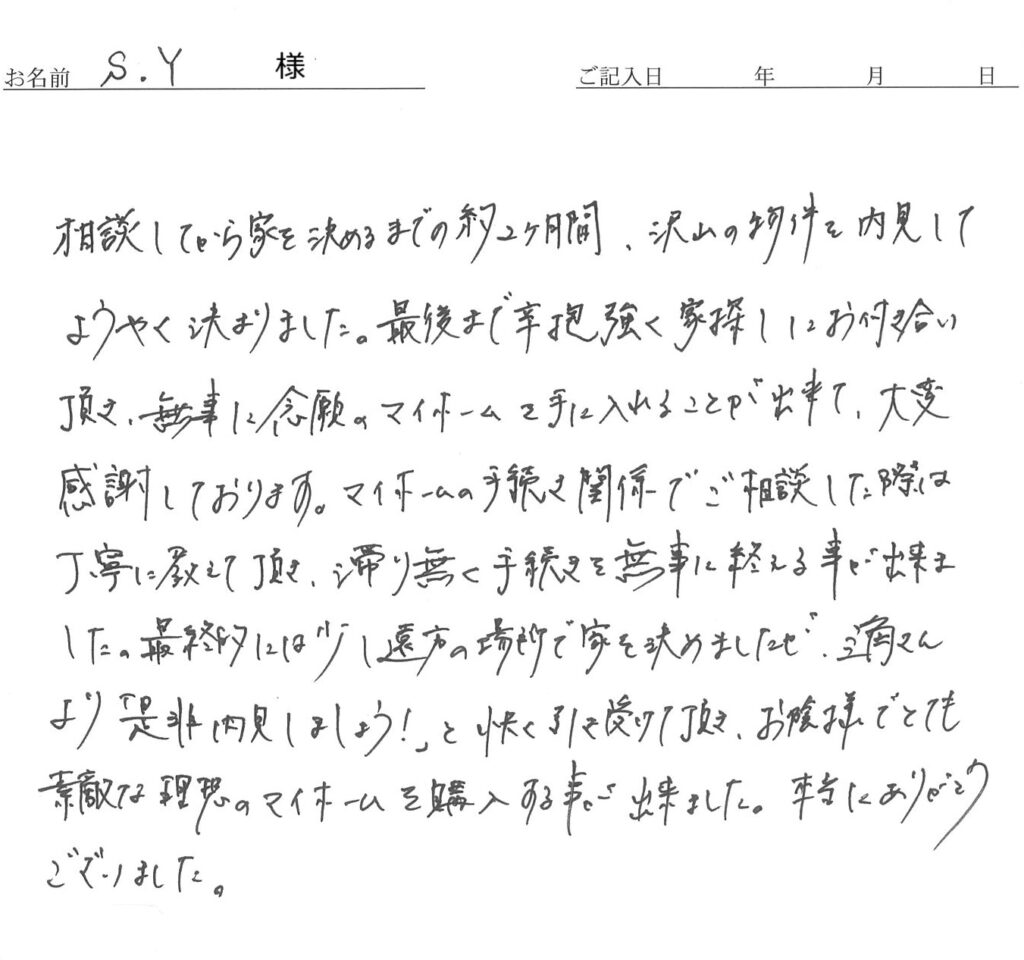 お名前 S.Y 様 ご記入日 年 月 日
相談してから家を決めるまでの約2ヶ月間、沢山の物件を内見して
ようやく決まりました。最後まで辛抱強く家探しにお付き合い
頂き、無事に念願のマイホームを手に入れることが出来て、大変
感謝しております。マイホームの手続き関係でご相談した際は
丁寧に教えて頂き、滞り無く手続きを無事に終える事が出来ま
した。最終的には少し遠方の場所で家を決めましたが、三角さん
より「是非内見しましょう!」と快く引き受けて頂き、お陰様でとても
素敵な理想のマイホームを購入する事が出来ました。本当にありがとう
ございました。